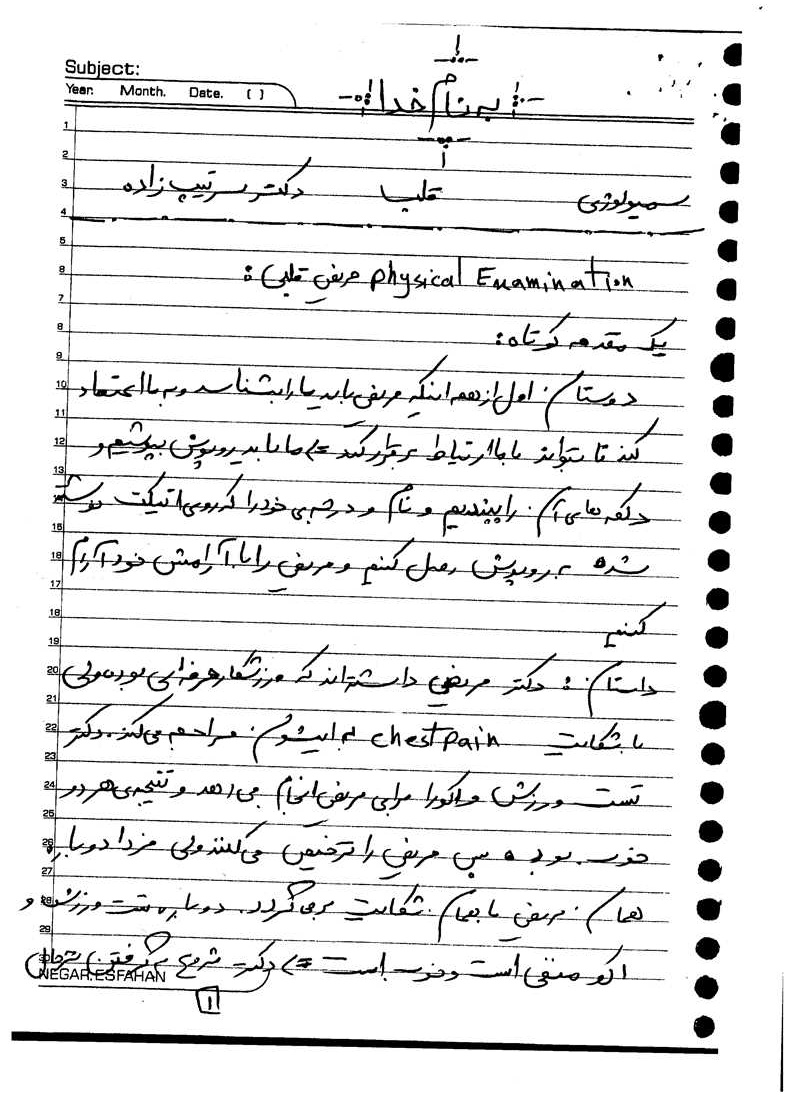 Subject:
Year. Month. Date. ( )
به نام خدا
سمیولوژی قلب دکتر سرتیپ زاده
physical Examination مریض قلبی:
یک مقدمه کوتاه:
دوستان اول از همه اینکه مریض باید ما را بشناسد و به ما اعتماد
کند تا بتواند با ما ارتباط برقرار کند => ما باید روپوش بپوشیم و
دکمه های آن را ببندیم و نام و درجه ی خود را که روی اتیکت نوشته
شده به روپوش وصل کنیم و مریض را با آرامش خود آرام
کنیم
داستان: دکتر مریضی داشته اند که ورزشکار حرفه ای بوده ولی
با شکایت chest pain به ایشون مراجعه می کند. دکتر
تست ورزش و اکو را برای مریض انجام می دهد و نتیجه ی هر دو
خوب بوده پس مریض را ترخیص می کنند ولی فردا دوباره
همان مریض با همان شکایت برمی گردد. دوباره تست ورزش و
اکو منفی است و خوب است => دکتر شروع به گرفتن شرحال
NEGAR.ESFAHAN
1
1
2
3
4
5
6
7
8
9
10
11
12
13
14
15
16
17
18
19
20
21
22
23
24
25
26
27
28
29